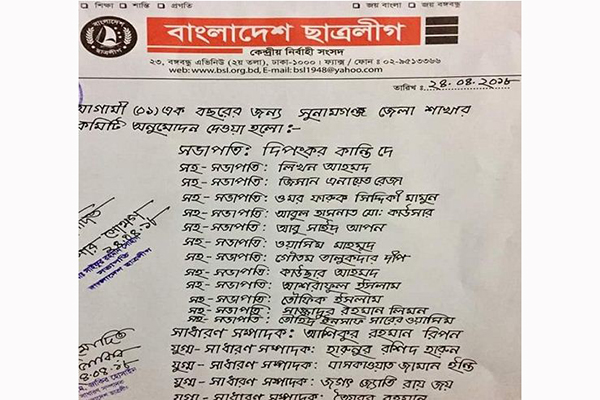 □ শিক্ষা □ শান্তি □ প্রগতি
□ জয় বাংলা □ জয় বঙ্গবন্ধু
বাংলাদেশ ছাত্রলীগ
বাংলাদেশ
ছাত্রলীগ
কেন্দ্রীয় নির্বাহী সংসদ
২৩, বঙ্গবন্ধু এভিনিউ (২য় তলা), ঢাকা-১০০০। ফ্যাক্স / ফোন ঃ ০২-৯৫১৩৩৬৬
web: www.bsl.org.bd, E-mail: bsl1948@yahoo.com
তারিখ ঃ ২৪.০৪.২০১৮
আগামী (০১) এক বছরের জন্য সুনামগঞ্জ জেলা শাখার
কমিটি অনুমোদন দেওয়া হলো:-
সভাপতি: দিপংকর কান্তি দে
সহ-সভাপতি: লিখন আহমদ
সহ-সভাপতি: জিসান এনায়েত রেজা
সহ-সভাপতি: ওমর ফারুক সিদ্দিকী মামুন
সহ-সভাপতি: আবুল হাসনাত মো: কাউসার
সহ-সভাপতি: আবু সাইদ আপন
সহ-সভাপতি: ওয়াসিম মাহমুদ
সহ-সভাপতি: গৌতম তালুকদার দীপ
সহ-সভাপতি: কাউছার আহমদ
সহ-সভাপতি: আশরাফুল ইসলাম
সহ-সভাপতি: তৌফিক ইসলাম
সহ-সভাপতি: সাজ্জাদুর রহমান লিমন
সহ-সভাপতি: তৌহিদ ইনসাফ সাবের ওয়াসিম
সাধারণ সম্পাদক: আশিকুর রহমান রিপন
যুগ্ম-সাধারণ সম্পাদক: হারুনুর রশিদ হারুন
যুগ্ম-সাধারণ সম্পাদক: মাসকাওয়াত জামান ইন্তি
যুগ্ম-সাধারণ সম্পাদক: জগৎ জ্যোতি রায় জয়
যুগ্ম-সাধারণ সম্পাদক: তৈয়বুর রহমান
সভাপতি
বাংলাদেশ ছাত্রলীগ